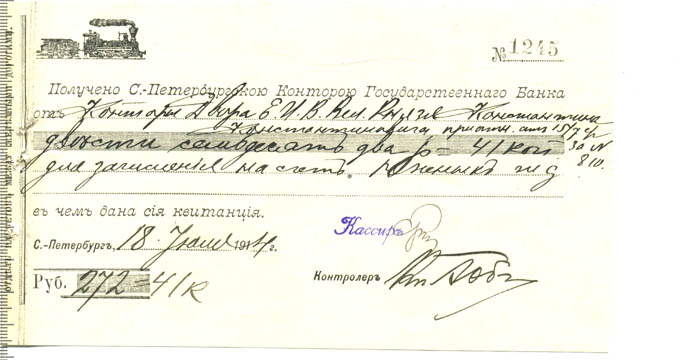 № 1245
Получено С.-Петербургскою Конторою Государственнаго Банка
отъ Конторы Двора Е. И. В. Вел. Князя Константина
Константиновича, при отн. отъ 15/7
двѣсти семьдесятъ два р – 41 коп
за № 810.
для зачисленія на счетъ
въ чемъ дана сія квитанція.
Кассиръ
С.-Петербургъ, 18 Іюля 1914 г.
Руб. 272 = 41 к
Контролеръ